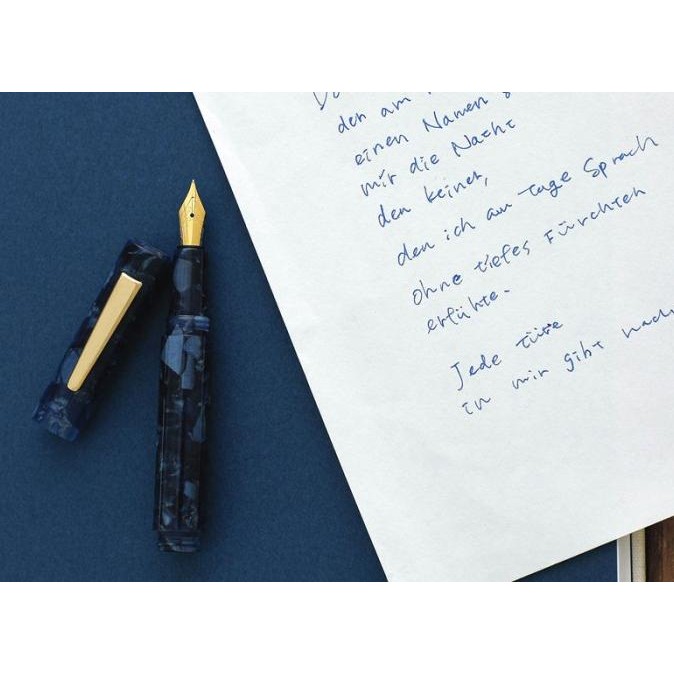 den am
einen Namen
mir die Nacht
den keiner,
den ich am tage Sprach
ohne tiefes Fürchten
erführte.
Jede türe
in mir gibt nach